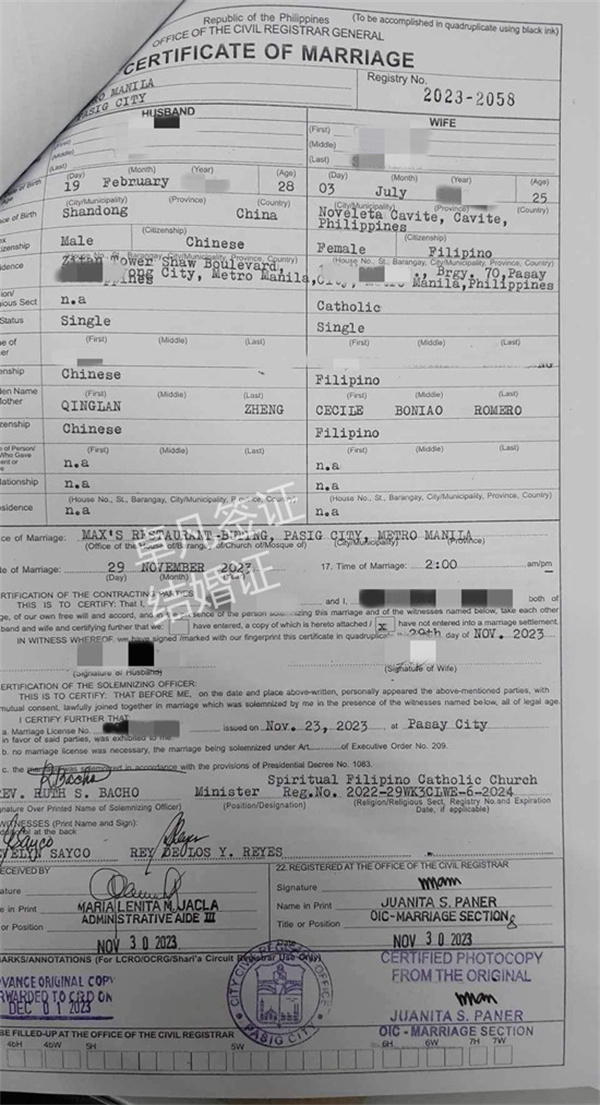 Republic of the Philippines
(To be accomplished in quadruplicate using black ink)
OFFICE OF THE CIVIL REGISTRAR GENERAL
CERTIFICATE OF MARRIAGE
MANILA
PASIG CITY
Registry No.
2023-2058
HUSBAND
WIFE
(First)
(Middle)
(Middle)
(Last)
(Day) (Month) (Year) (Age)
(Day) (Month) (Year) (Age)
19 February 28
03 July 25
(City/Municipality) (Province) (Country)
(City/Municipality) (Province) (Country)
Shandong China
Noveleta Cavite, Cavite, Philippines
(Citizenship)
(Citizenship)
Male Chinese
Female Filipino
(House No., St., Barangay, City/Municipality, Province, Country)
Tower Shaw Boulevard,
City, Metro Manila,
Brgy. 70, Pasay
Manila, Philippines
n.a
Catholic
Status
Single
Single
(First) (Middle) (Last)
(First) (Middle) (Last)
Chinese
Filipino
(First) (Middle) (Last)
(First) (Middle) (Last)
QINGLAN ZHENG
CECILE BONIAO ROMERO
Chinese
Filipino
(First) (Middle) (Last)
(First) (Middle) (Last)
n.a
n.a
n.a
n.a
(House No., St., Barangay, City/Municipality, Province, Country)
(House No., St., Barangay, City/Municipality, Province, Country)
n.a
n.a
卓凡签证
结婚证
of Marriage: MAX'S RESTAURANT- PASIG CITY, METRO MANILA
(Office of the House of/Barangay of/Church of/Mosque of) (City/Municipality) (Province)
of Marriage: 29 NOVEMBER 2023
(Day) (Month) (Year)
17. Time of Marriage: 2:00 am/pm
CERTIFICATION OF THE CONTRACTING PARTIES
THIS IS TO CERTIFY: That I, and I, both of
age, of our own free will and accord, and in the presence of the person solemnizing this marriage and of the witnesses named below, take each other
band and wife and certifying further that we: have entered, a copy of which is hereto attached / x have not entered into a marriage settlement.
IN WITNESS WHEREOF, we have signed /marked with our fingerprint this certificate in quadruplicate this 29th day of NOV. 2023
(Signature of Husband)
(Signature of Wife)
CERTIFICATION OF THE SOLEMNIZING OFFICER:
THIS IS TO CERTIFY: THAT BEFORE ME, on the date and place above-written, personally appeared the above-mentioned parties, with
mutual consent, lawfully joined together in marriage which was solemnized by me in the presence of the witnesses named below, all of legal age.
I CERTIFY FURTHER THAT:
a. Marriage License No. issued on Nov. 23, 2023 at Pasay City
in favor of said parties, was exhibited to me
b. no marriage license was necessary, the marriage being solemnized under Art. of Executive Order No. 209.
c. the marriage was solemnized in accordance with the provisions of Presidential Decree No. 1083.
RBacho
REV. RUTH S. BACHO
Minister
Spiritual Filipino Catholic Church
Reg.No. 2022-29WK3CLWE-6-2024
(Signature Over Printed Name of Solemnizing Officer)
(Position/Designation)
(Religion/Religious Sect, Registry No.and Expiration Date, if applicable)
WITNESSES (Print Name and Sign):
at the back
Sayco
EVELYN SAYCO
REY DEULOS Y. REYES
RECEIVED BY
22. REGISTERED AT THE OFFICE OF THE CIVIL REGISTRAR
Signature
MARIA LENITA M. JACLA
Name in Print JUANITA S. PANER
ADMINISTRATIVE AIDE III
Title or Position OIC-MARRIAGE SECTION
NOV 30 2023
NOV 30 2023
REMARKS/ANNOTATIONS (For LCRO/OCRG/Shari'a Circuit Registrar Use Only)
ADVANCE ORIGINAL COPY
FORWARDED TO CRD ON
DEC 01 2023
CITY CIVIL REGISTRY OFFICE
PASIG CITY
CERTIFIED PHOTOCOPY
FROM THE ORIGINAL
JUANITA S. PANER
OIC - MARRIAGE SECTION
BE FILLED-UP AT THE OFFICE OF THE CIVIL REGISTRAR
4bH 4bW 5H 5W 6H 6W 7H 7W